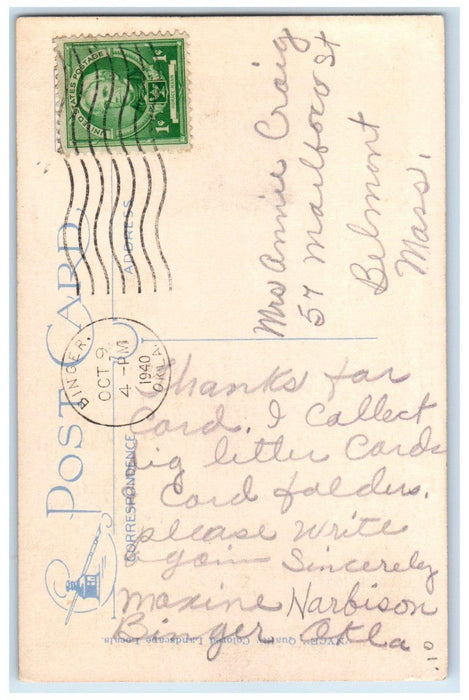 UNITED STATES POSTAGE
1¢
1¢
BINGER,
OCT 9
4-PM
1940
OKLA.
POST CARD
ADDRESS
CORRESPONDENCE
Mrs Annie Craig
57 St
Belmont
Mass.
Thanks for
Card. I Collect
big letter Cards
Card folders.
please write
again Sincerely
Maxine Harbison
Binger, Okla
Quality Colored Landscape Locals.
10